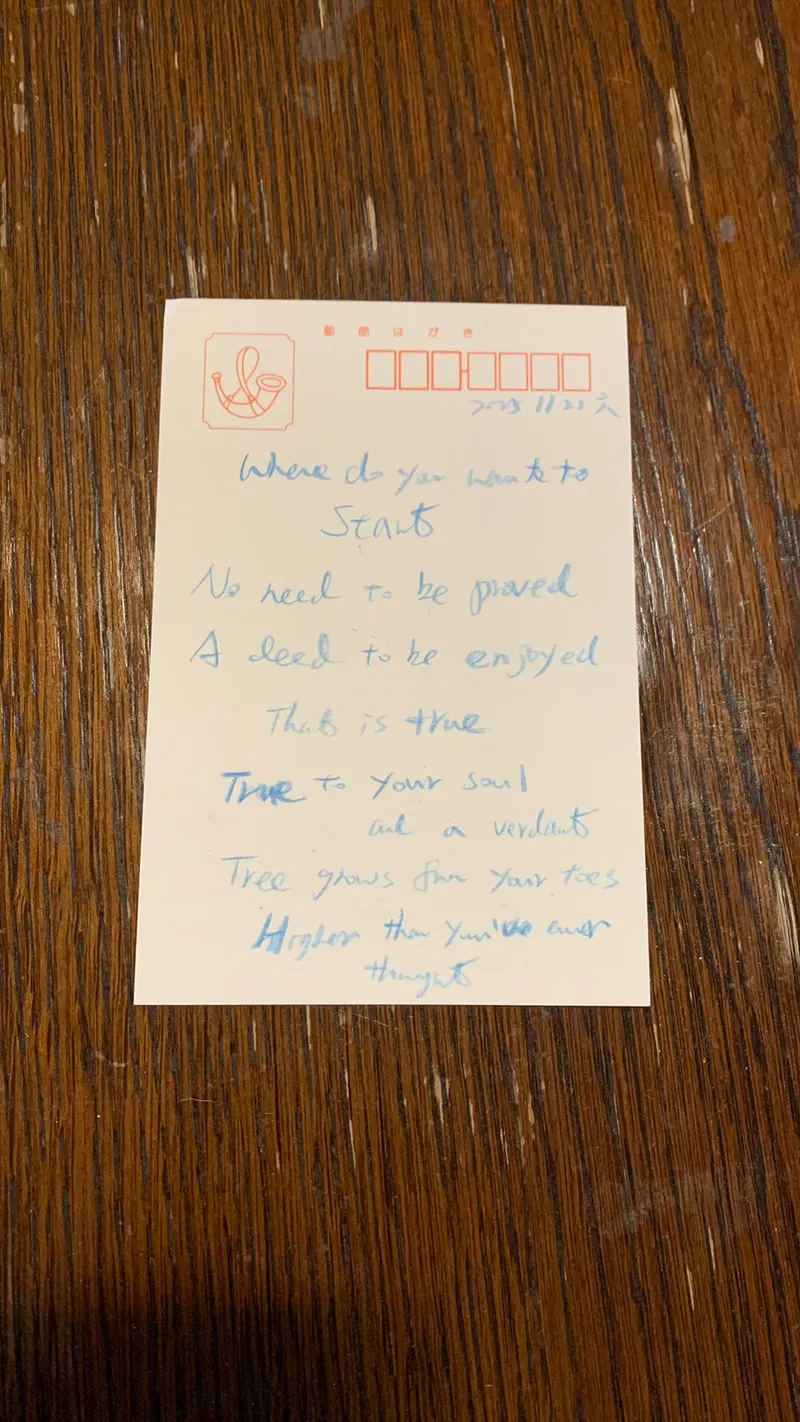 郵便はがき
2025 11 22 六
Where do you want to
Start
No need to be proved
A deed to be enjoyed
That is true
True to your soul
and a verdant
Tree grows from your toes
Higher than you've ever
thought